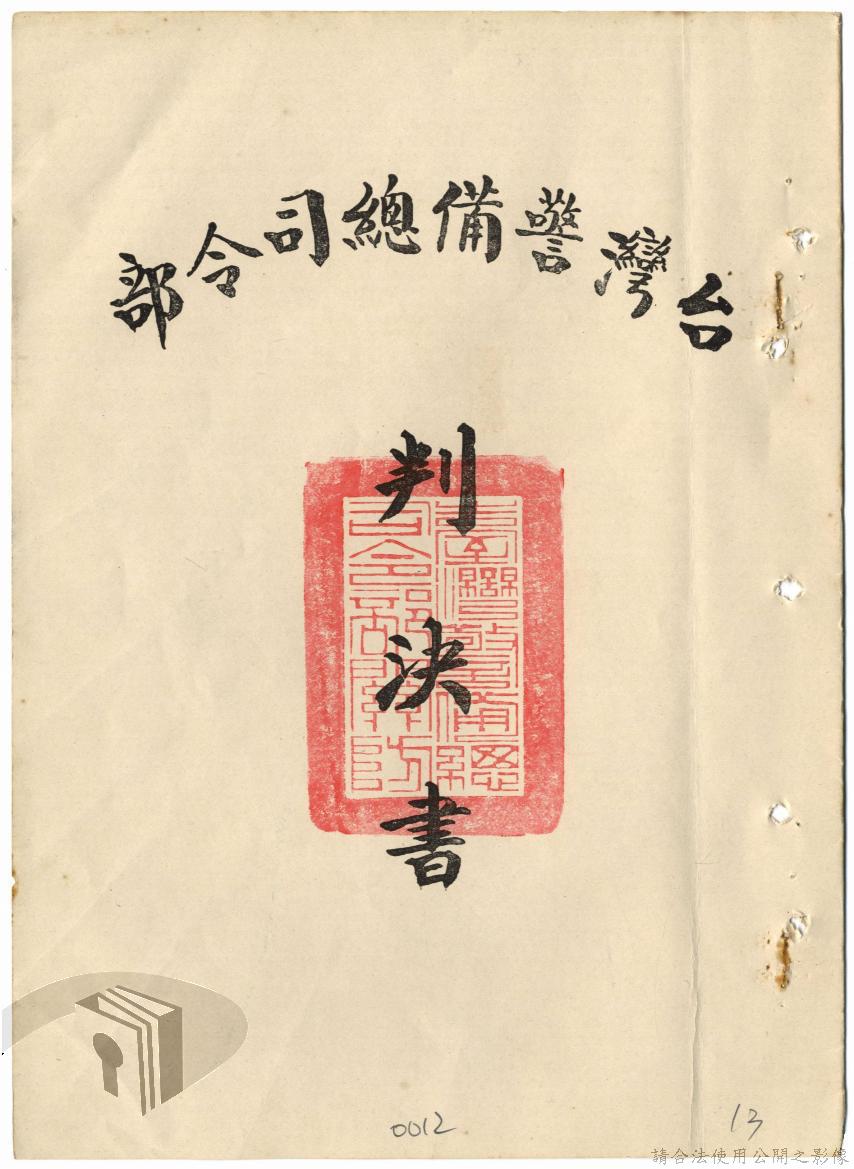 台灣警備總司令部
判決書
臺灣警備總
司令部關防
0012
13
請合法使用公開之影像